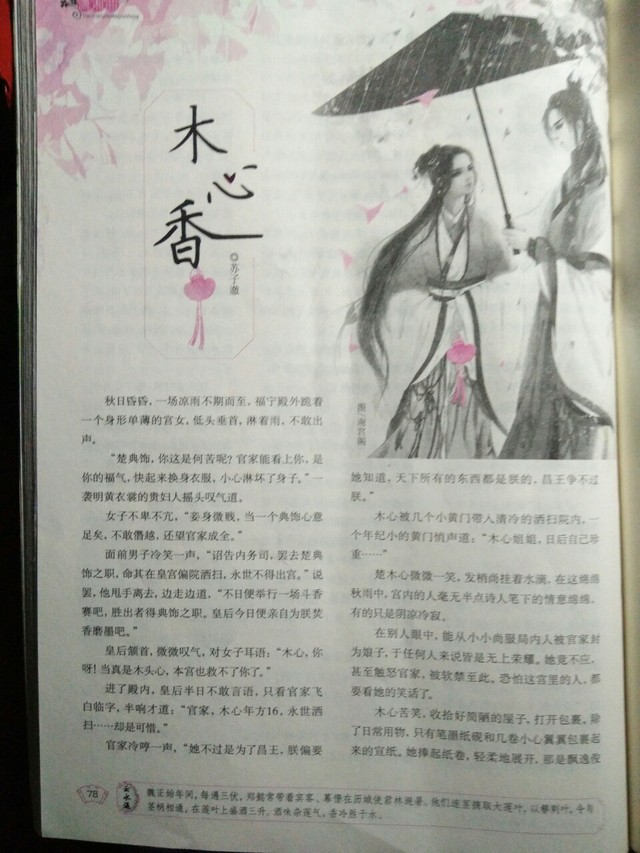 木
心
香
◎苏子澈
图/南宫阁
秋日昏昏，一场凉雨不期而至，福宁殿外跪着
一个身形单薄的宫女，低头垂首，淋着雨，不敢出
声。
“楚典饰，你这是何苦呢？官家能看上你，是
你的福气，快起来换身衣服，小心淋坏了身子。”一
袭明黄衣裳的贵妇人摇头叹气道。
女子不卑不亢，“妾身微贱，当一个典饰心意
足矣，不敢僭越，还望官家成全。”
面前男子冷笑一声，“诏告内务司，罢去楚典
饰之职，命其在皇宫偏院洒扫，永世不得出宫。”说
罢，他甩手离去，边走边道，“不日便举行一场斗香
赛吧，胜出者得典饰之职。皇后今日便亲自为朕焚
香磨墨吧。”
皇后颔首，微微叹气，对女子耳语：“木心，你
呀！当真是木头心，本宫也救不了你了。”
进了殿内，皇后半日不敢言语，只看官家飞
白临字，半晌才道：“官家，木心年方16，永世洒
扫……却是可惜。”
官家冷哼一声，“她不过是为了昌王，朕偏要
她知道，天下所有的东西都是朕的，昌王争不过
朕。”
木心被几个小黄门带入清冷的洒扫院内，一
个年纪小的黄门悄声道：“木心姐姐，日后自己珍
重……”
楚木心微微一笑，发梢尚挂着水滴，在这绵绵
秋雨中，宫内的人毫无半点诗人笔下的情意绵绵，
有的只是阴凉冷寂。
在别人眼中，能从小小尚服局内人被官家封
为娘子，于任何人来说皆是无上荣耀。她竟不应，
甚至触怒官家，被软禁至此。恐怕这宫里的人，都
要看她的笑话了。
木心苦笑，收拾好简陋的屋子，打开包裹，除
了日常用物，只有笔墨纸砚和几卷小心翼翼包裹起
来的宣纸。她捧起纸卷，轻柔地展开，那是飘逸俊
78
魏正始年间，每遇三伏，郑懿常带着宾客、幕僚在历城使君林避暑。他们连茎摘取大莲叶，以簪刺叶，令与
茎柄相通，在莲叶上盛酒三升。酒味杂莲气，香冷胜于水。